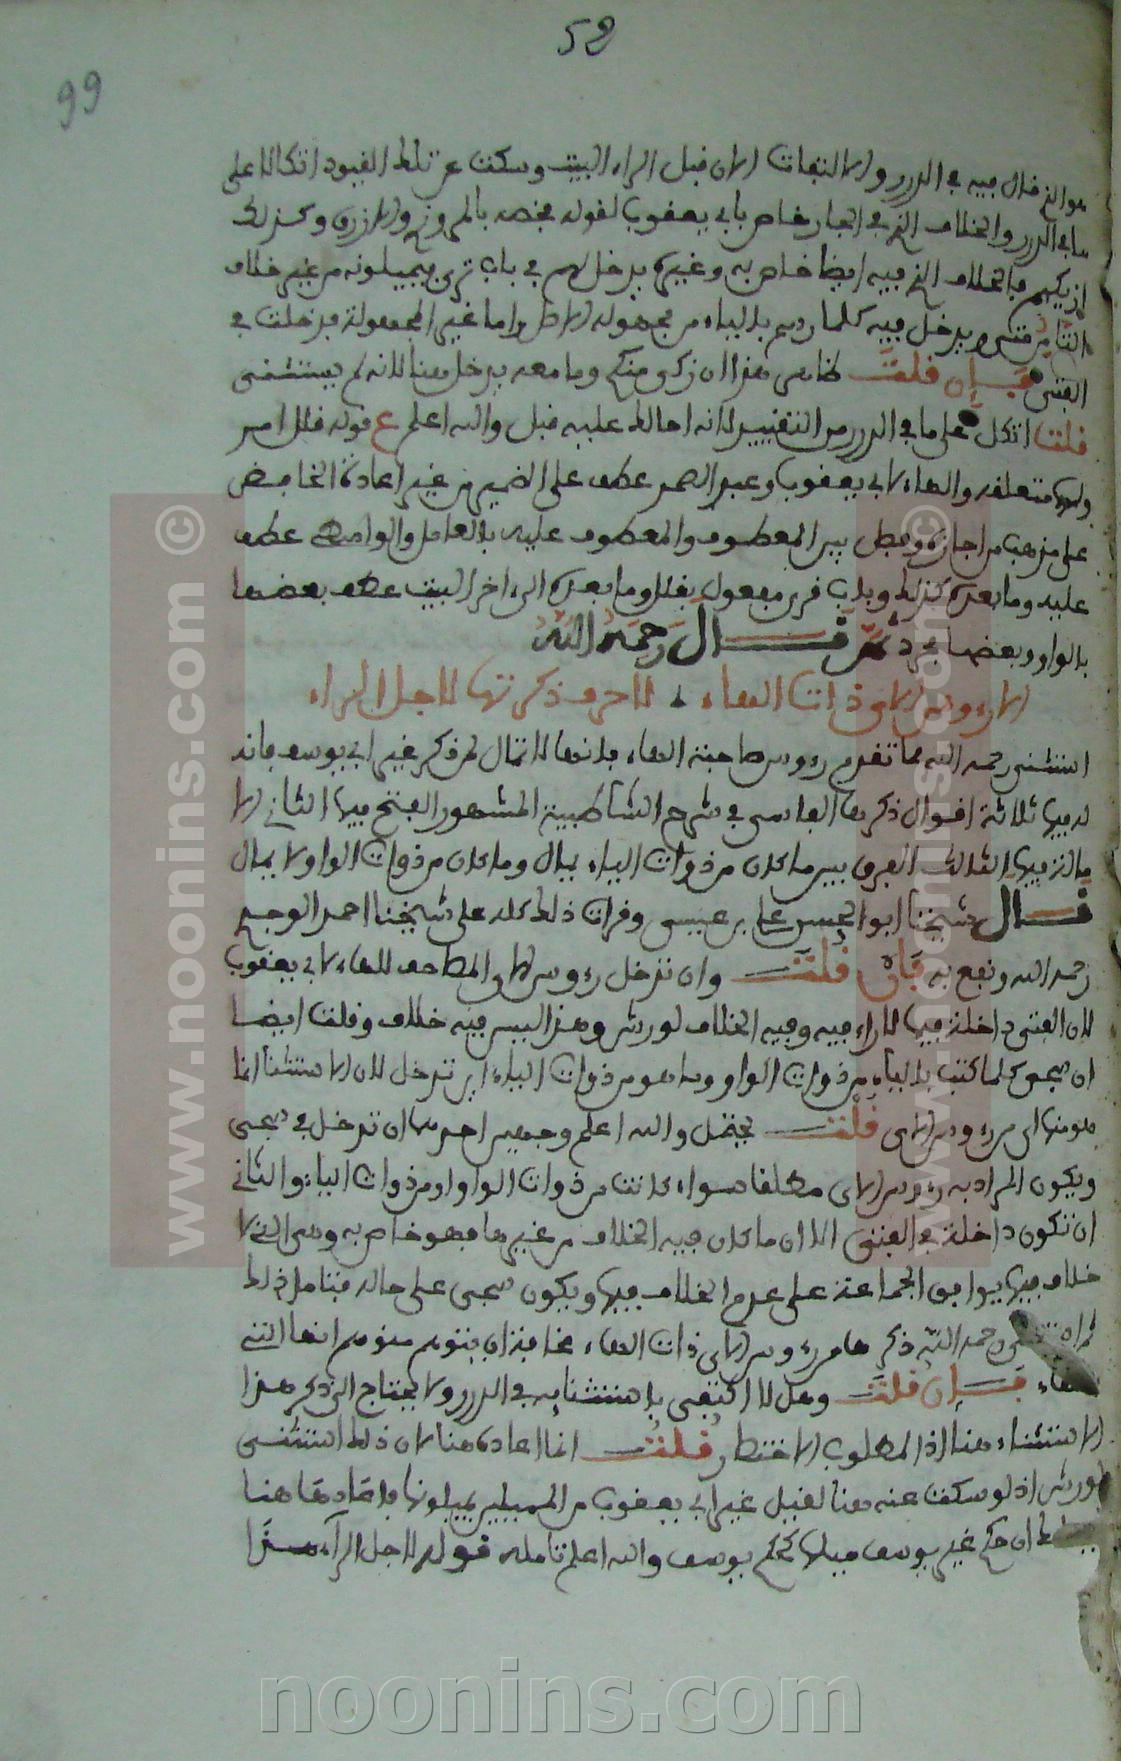 59
99
هو الذي قال فيه في الدرر ولا التفات لان قبل الراء البيت وسكت عن تلك القيود اتكالا على
ما في الدرر والخلاف الذي في الجار خاص بابي يعقوب لقوله
فيه ايضا خاص به وغيره يدخل لهم في باب ترى يميلونه من غير خلاف
ويدخل فيه كلما رسم بالياء من مجهولة الاصل واما غير المجهولة فدخلت في
الفتى فإن قلت ظاهر هذا ان زكى منكم وما معه يدخل هنا لانه لم يستثنى
قلت اتكل على ما في الدرر من التقييد لانه احال عليه قبل والله اعلم ع قوله قلل امر
متعلقه والهاء لابي يعقوب وعبد الصمد عطف على الضمير من غير اعادة الخافض
على مذهب من اجازه وفصل بين المعطوف والمعطوف عليه بالعامل عطف
عليه وما بعده كذلك وباب مفعول بقلل وما بعده الى اخر البيت عطف بعضها
بالواو وبعضها مجرد ثم قال رحمه الله
الا رءوس الاي ذات الهاء لا حرف ذكرتها لاجل الراء
استثنى رحمه الله مما تقدم رءوس صاحبة الهاء فانها لا تمال ثم ذكر غير ابي يوسف فان
له فيها ثلاثة اقوال ذكرها الفاسي في شرح الشاطبية المشهور الفتح فيها الثاني
الثالث الفرق بين ما كان من ذوات الياء يمال وما كان من ذوات الواو لا يمال
قال شيخنا ابو الحسن علي بن عيسى وقرات ذلك كله على شيخنا احمد
رحمه الله ونفع به فإن قلت واين تدخل رءوس الاي المصاحب للهاء لابي يعقوب
لان الفتى داخلة فيها للاراء فيه وفيه الخلاف لورش وهذا ليس فيه خلاف وقلت ايضا
ان سجى كلما كتب بالياء من ذوات الواو وما هو من ذوات الياء اين تدخل لان الاستثناء انما
هو منها اي من رءوس الاي قلت يحتمل والله اعلم وجهين احدهما ان تدخل في سجى
ويكون المراد به رءوس الاي مطلقا سواء كانت من ذوات الواو او من ذوات الياء والثاني
ان تكون داخلة في الفتى الا ان ما كان فيه الخلاف من غيرها فهو خاص به وهي التي لا
خلاف فيها يوافق الجماعة على عدم الخلاف فيها ويكون سجى على حاله فتامل ذلك
رحمه الله ذكر ها من رءوس الاي ذات الهاء مخافة ان يتوهم متوهم انها
فإن قلت وهل لا اكتفى باستثنائه في الدرر ولا يحتاج الى ذكر هذا
الاستثناء هنا اذ المطلوب الاختصار قلت انما اعاده هنا لان ذلك استثنى
لورش اذ لو سكت عنه هنا لقيل غير ابي يعقوب من المميلين يميلونها فاعادها هنا
ان حكم غير يوسف فيها كحكم يوسف والله اعلم تامله قوله لاجل الراء
www.noonins.com ©
www.noonins.com ©
noonins.com